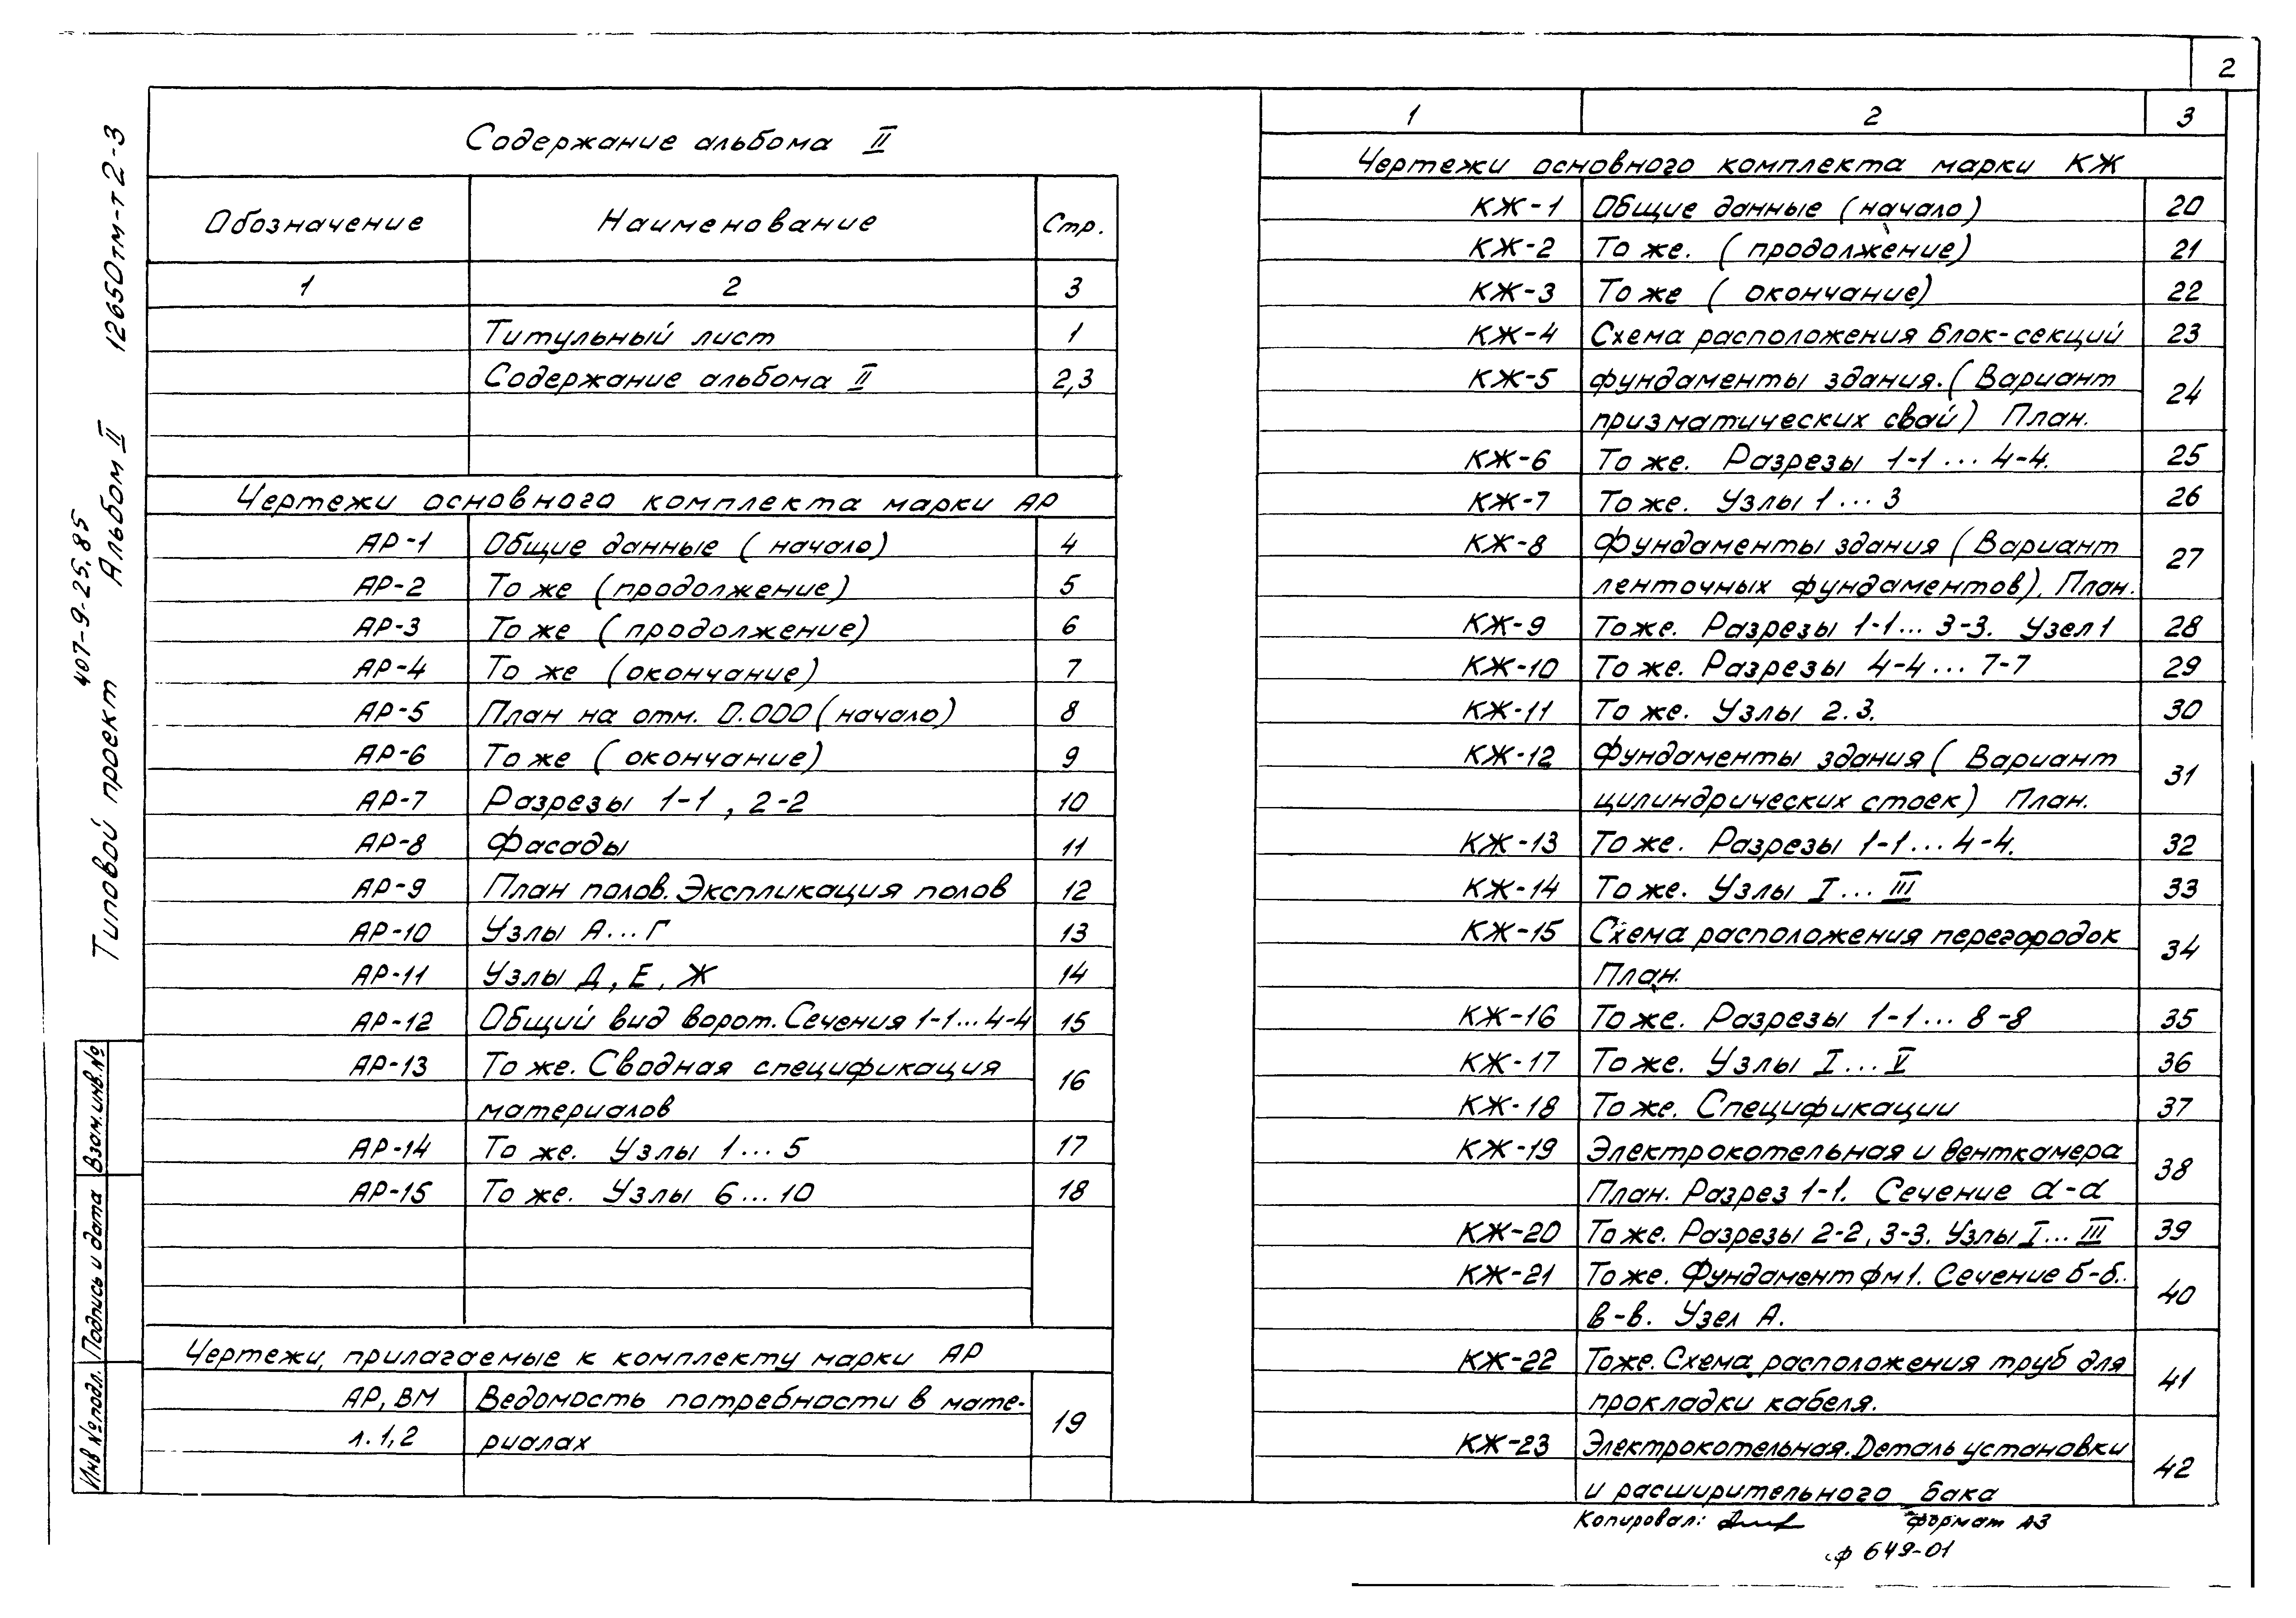 2
Содержание альбома II
Обозначение Наименование Стр.
1 2 3
Титульный лист 1
Содержание альбома II 2,3
Чертежи основного комплекта марки АР
АР-1 Общие данные (начало) 4
АР-2 То же (продолжение) 5
АР-3 То же (продолжение) 6
АР-4 То же (окончание) 7
АР-5 План на отм. 0.000 (начало) 8
АР-6 То же (окончание) 9
АР-7 Разрезы 1-1, 2-2 10
АР-8 Фасады 11
АР-9 План полов. Экспликация полов 12
АР-10 Узлы А...Г 13
АР-11 Узлы Д, Е, Ж 14
АР-12 Общий вид ворот. Сечения 1-1...4-4 15
АР-13 То же. Сводная спецификация 16
материалов
АР-14 То же. Узлы 1...5 17
АР-15 То же. Узлы 6...10 18
Чертежи, прилагаемые к комплекту марки АР
АР, ВМ Ведомость потребности в мате- 19
л. 1, 2 риалах
1 2 3
Чертежи основного комплекта марки КЖ
КЖ-1 Общие данные (начало) 20
КЖ-2 То же. (продолжение) 21
КЖ-3 То же (окончание) 22
КЖ-4 Схема расположения блок-секций 23
КЖ-5 Фундаменты здания. (Вариант 24
призматических свай) План.
КЖ-6 То же. Разрезы 1-1...4-4. 25
КЖ-7 То же. Узлы 1...3 26
КЖ-8 Фундаменты здания (Вариант 27
ленточных фундаментов). План.
КЖ-9 То же. Разрезы 1-1...3-3. Узел 1 28
КЖ-10 То же. Разрезы 4-4...7-7 29
КЖ-11 То же. Узлы 2.3. 30
КЖ-12 Фундаменты здания (Вариант 31
цилиндрических стоек) План.
КЖ-13 То же. Разрезы 1-1...4-4. 32
КЖ-14 То же. Узлы I...III 33
КЖ-15 Схема расположения перегородок 34
План.
КЖ-16 То же. Разрезы 1-1...8-8 35
КЖ-17 То же. Узлы I...V 36
КЖ-18 То же. Спецификации 37
КЖ-19 Электрокотельная и венткамера 38
План. Разрез 1-1. Сечение а-а
КЖ-20 То же. Разрезы 2-2, 3-3. Узлы I...III 39
КЖ-21 То же. Фундамент фм1. Сечение б-б. 40
в-в. Узел А.
КЖ-22 То же. Схема расположения труб для 41
прокладки кабеля.
КЖ-23 Электрокотельная. Деталь установки 42
и расширительного бака
Копировал: Формат А3
ф 649-01
Типовой проект 407-9-25.85 Альбом II 12650тм-т2-3
Взам. инв. №
Подпись и дата
Инв № подл.